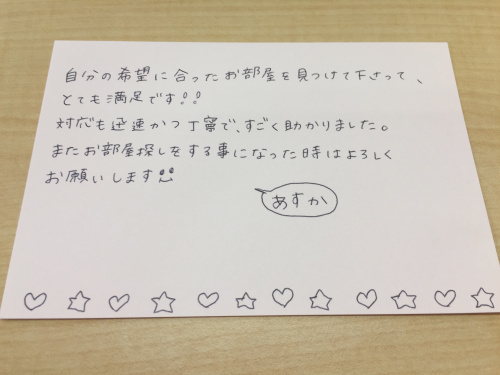 自分の希望に合ったお部屋を見つけて下さって、
とても満足です!!
対応も迅速かつ丁寧で、すごく助かりました。
またお部屋探しをする事になった時はよろしく
お願いします
あすか